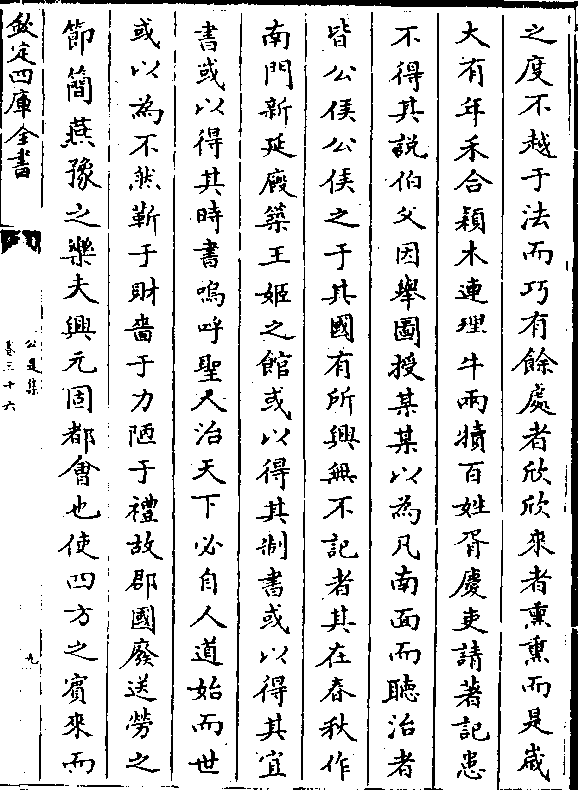 之度不越于法而巧有餘處者欣欣來者熏熏而是歲
大有年禾合穎木連理牛兩犢百姓胥慶吏請著記患
不得其説伯父因舉圖授某某以為凡南面而聽治者
皆公侯公侯之于其國有所興無不記者其在春秋作
南門新延廐築王姬之館或以得其制書或以得其宜
書或以得其時書嗚呼聖人治天下必自人道始而世
或以為不然靳于財嗇于力陋于禮故郡國廢送勞之
節簡燕豫之樂夫興元固都會也使四方之賓來而
欽定四庫全書
公是集
卷三十六
九